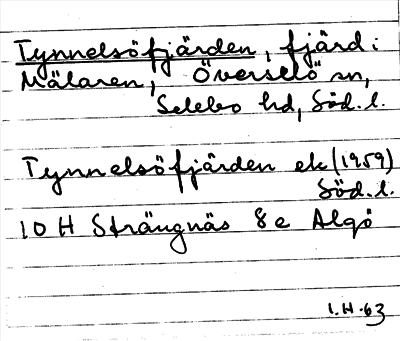 Tynnelsöfjärden, fjärd i
Mälaren, Överselö sn,
Selebo hd, Söd. l.
Tynnelsöfjärden ek (1959)
Söd. l.
10 H Strängnäs 8 e Algö
I.H. 63